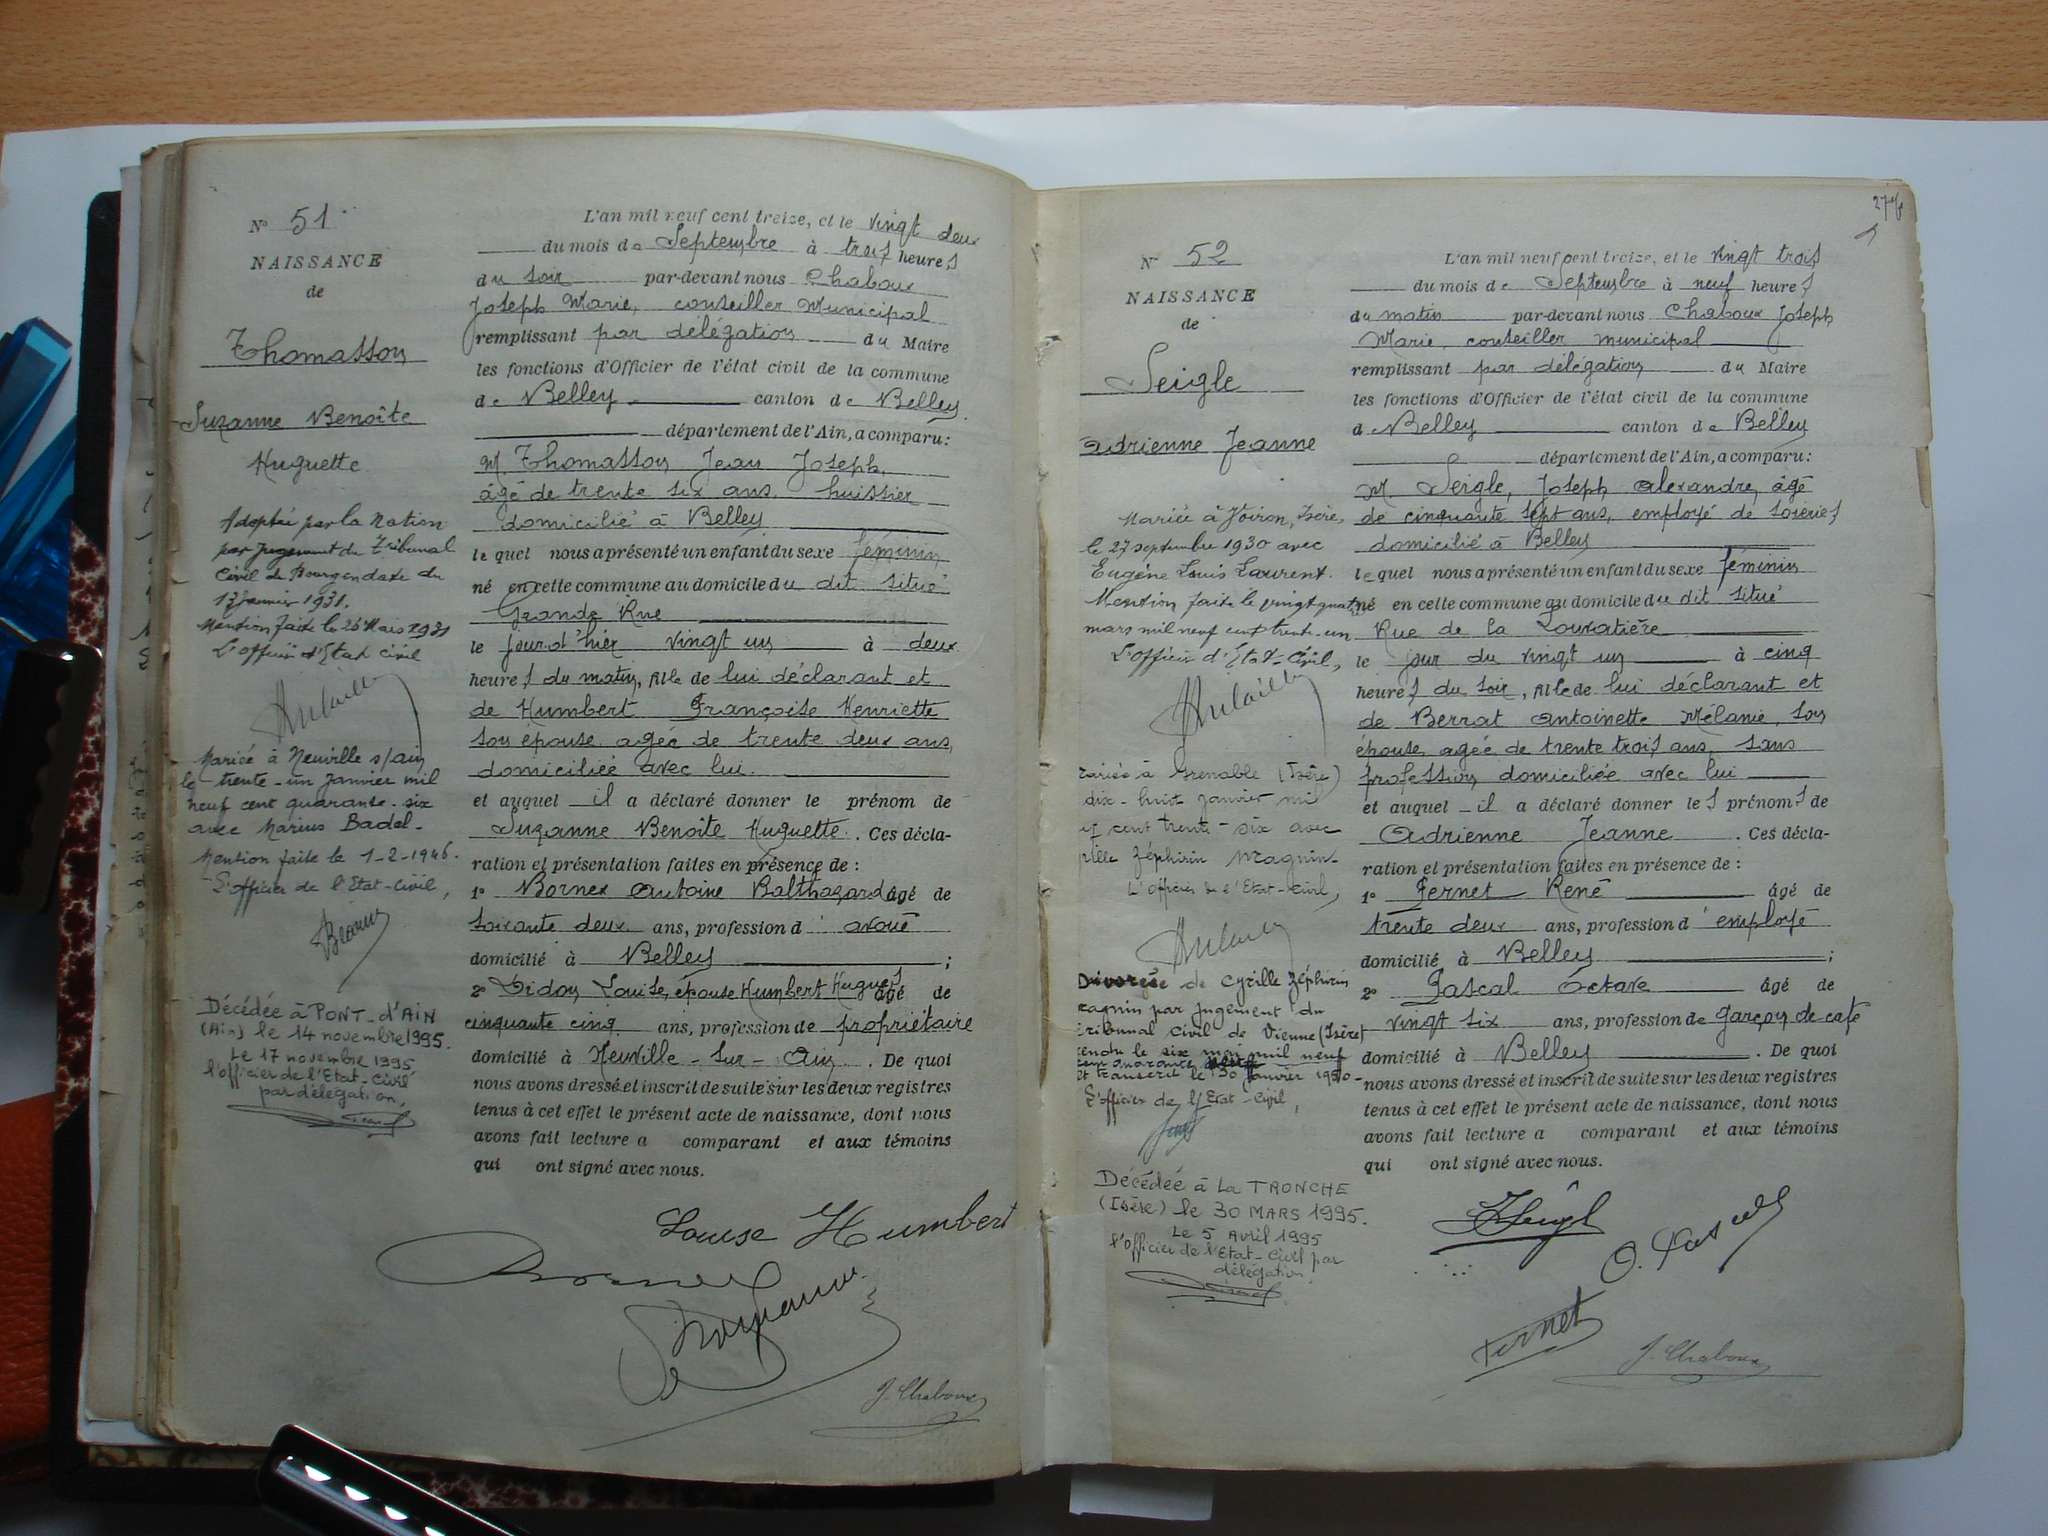 N° 51
NAISSANCE
de
Thomasson
Suzanne Benoîte
Huguette
Adoptée par la Nation
par jugement du Tribunal
Civil de Bourg en date du
17 janvier 1931.
Mention faite le 26 Mars 1931
L'officier d'Etat civil
Mariée à Neuville s/ain
le trente-un Janvier mil
neuf cent quarante-six
avec Marius Badel-
Mention faite le 1-2-1946.
L'officier de l'Etat-Civil,
Décédée à PONT-d'AIN
(Ain) le 14 novembre 1995.
Le 17 novembre 1995
l'officier de l'Etat-Civil
par délégation,
L'an mil neuf cent treize, et le vingt deux
du mois de Septembre à trois heures
du soir par-devant nous Chaboux
Joseph Marie, conseiller Municipal
remplissant par délégation du Maire
les fonctions d'Officier de l'état civil de la commune
de Belley canton de Belley.
département de l'Ain, a comparu:
M. Thomasson Jean Joseph,
âgé de trente six ans, huissier
domicilié à Belley
lequel nous a présenté un enfant du sexe féminin
né en cette commune au domicile du dit situé
Grande Rue
le jour d'hier vingt un à deux
heures du matin, fille de lui déclarant et
de Humbert Françoise Henriette
son épouse agée de trente deux ans,
domiciliée avec lui.
et auquel il a déclaré donner le prénom de
Suzanne Benoîte Huguette. Ces décla-
ration et présentation faites en présence de :
1° Bornex Antoine Balthazard âgé de
soixante deux ans, profession d'avoué
domicilié à Belley ;
2° Didon Louise, épouse Humbert Hugues âgé de
cinquante cinq ans, profession de propriétaire
domicilié à Neuville-sur-Ain. De quoi
nous avons dressé et inscrit de suite sur les deux registres
tenus à cet effet le présent acte de naissance, dont nous
avons fait lecture a comparant et aux témoins
qui ont signé avec nous.
Louise Humbert
J. Chaboux
N° 52
NAISSANCE
de
Seigle
Adrienne Jeanne
Mariée à Voiron, Isère,
le 27 septembre 1930 avec
Eugène Louis Laurent.
Mention faite le vingt quatre
mars mil neuf cent trente-un
L'officier d'Etat-Civil,
mariée à Grenoble (Isère)
dix-huit janvier mil
cent trente-six avec
Zéphirin Magnin-
L'officier de l'Etat-Civil,
Divorcée de Cyrille Zéphirin
Magnin par jugement du
Tribunal Civil de Vienne (Isère)
rendu le six mai mil neuf
cent quarante
et transcrit le 30 Janvier 1950-
L'officier de l'Etat-Civil,
Décédée à La TRONCHE
(Isère) le 30 MARS 1995.
Le 5 Avril 1995
l'officier de l'Etat-Civil par
délégation,
L'an mil neuf cent treize, et le vingt trois
du mois de Septembre à neuf heures
du matin par-devant nous Chaboux Joseph
Marie, conseiller municipal
remplissant par délégation du Maire
les fonctions d'Officier de l'état civil de la commune
de Belley canton de Belley
département de l'Ain, a comparu:
M. Seigle, Joseph Alexandre, âgé
de cinquante sept ans, employé de soieries
domicilié à Belley
lequel nous a présenté un enfant du sexe féminin
né en cette commune au domicile du dit situé
Rue de la
le jour du vingt un à cinq
heures du soir, fille de lui déclarant et
de Berrat Antoinette Mélanie, son
épouse, agée de trente trois ans, sans
profession domiciliée avec lui
et auquel il a déclaré donner les prénoms de
Adrienne Jeanne. Ces décla-
ration et présentation faites en présence de :
1° Fernet René âgé de
trente deux ans, profession d'employé
domicilié à Belley ;
2° Pascal Octave âgé de
vingt six ans, profession de garçon de café
domicilié à Belley. De quoi
nous avons dressé et inscrit de suite sur les deux registres
tenus à cet effet le présent acte de naissance, dont nous
avons fait lecture a comparant et aux témoins
qui ont signé avec nous.
O. Pascal
Fernet
J. Chaboux